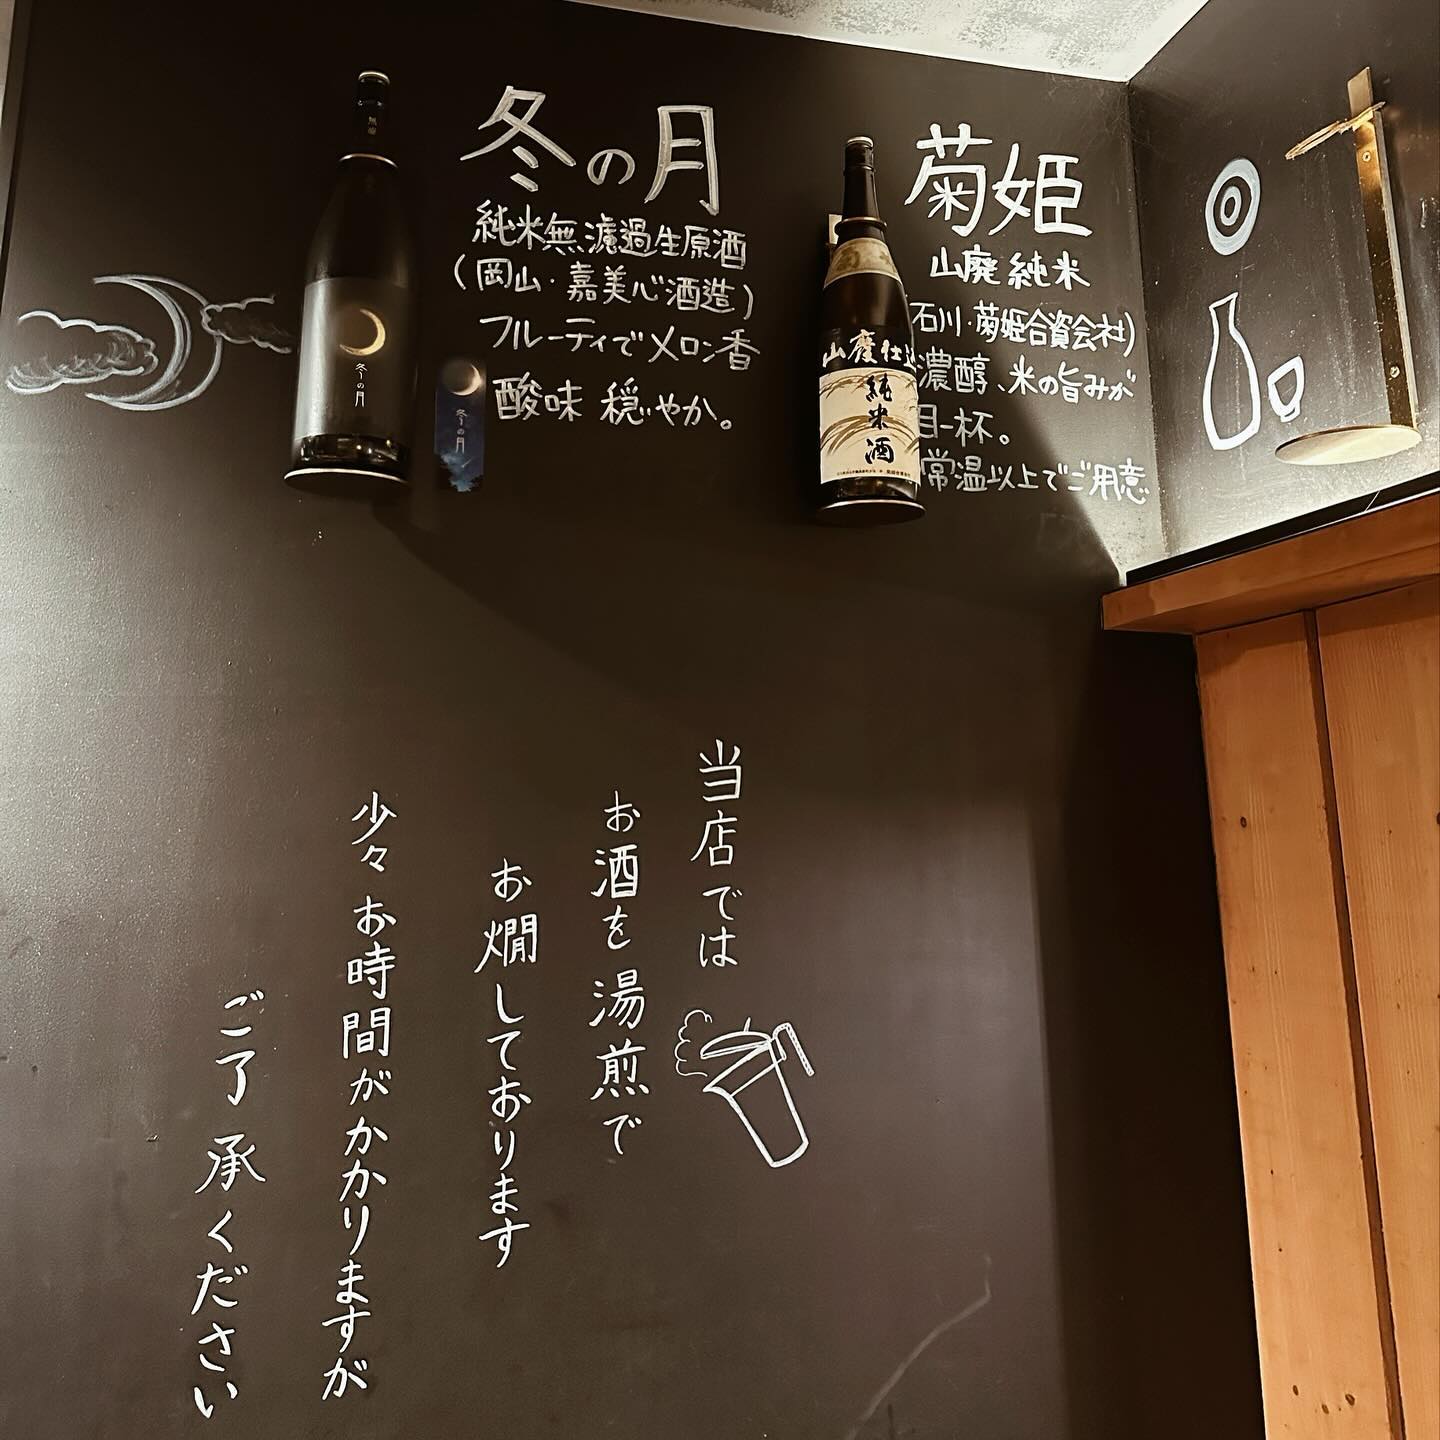 冬の月
純米無濾過生原酒
(岡山・嘉美心酒造)
フルーティでメロン香
酸味 穏やか。
冬の月
冬の月
菊姫
山廃純米
石川・菊姫合資会社)
濃醇、米の旨みが
目一杯。
常温以上でご用意
山廃仕込
純米酒
当店では
お酒を湯煎で
お燗しております
少々お時間がかかりますが
ご了承ください